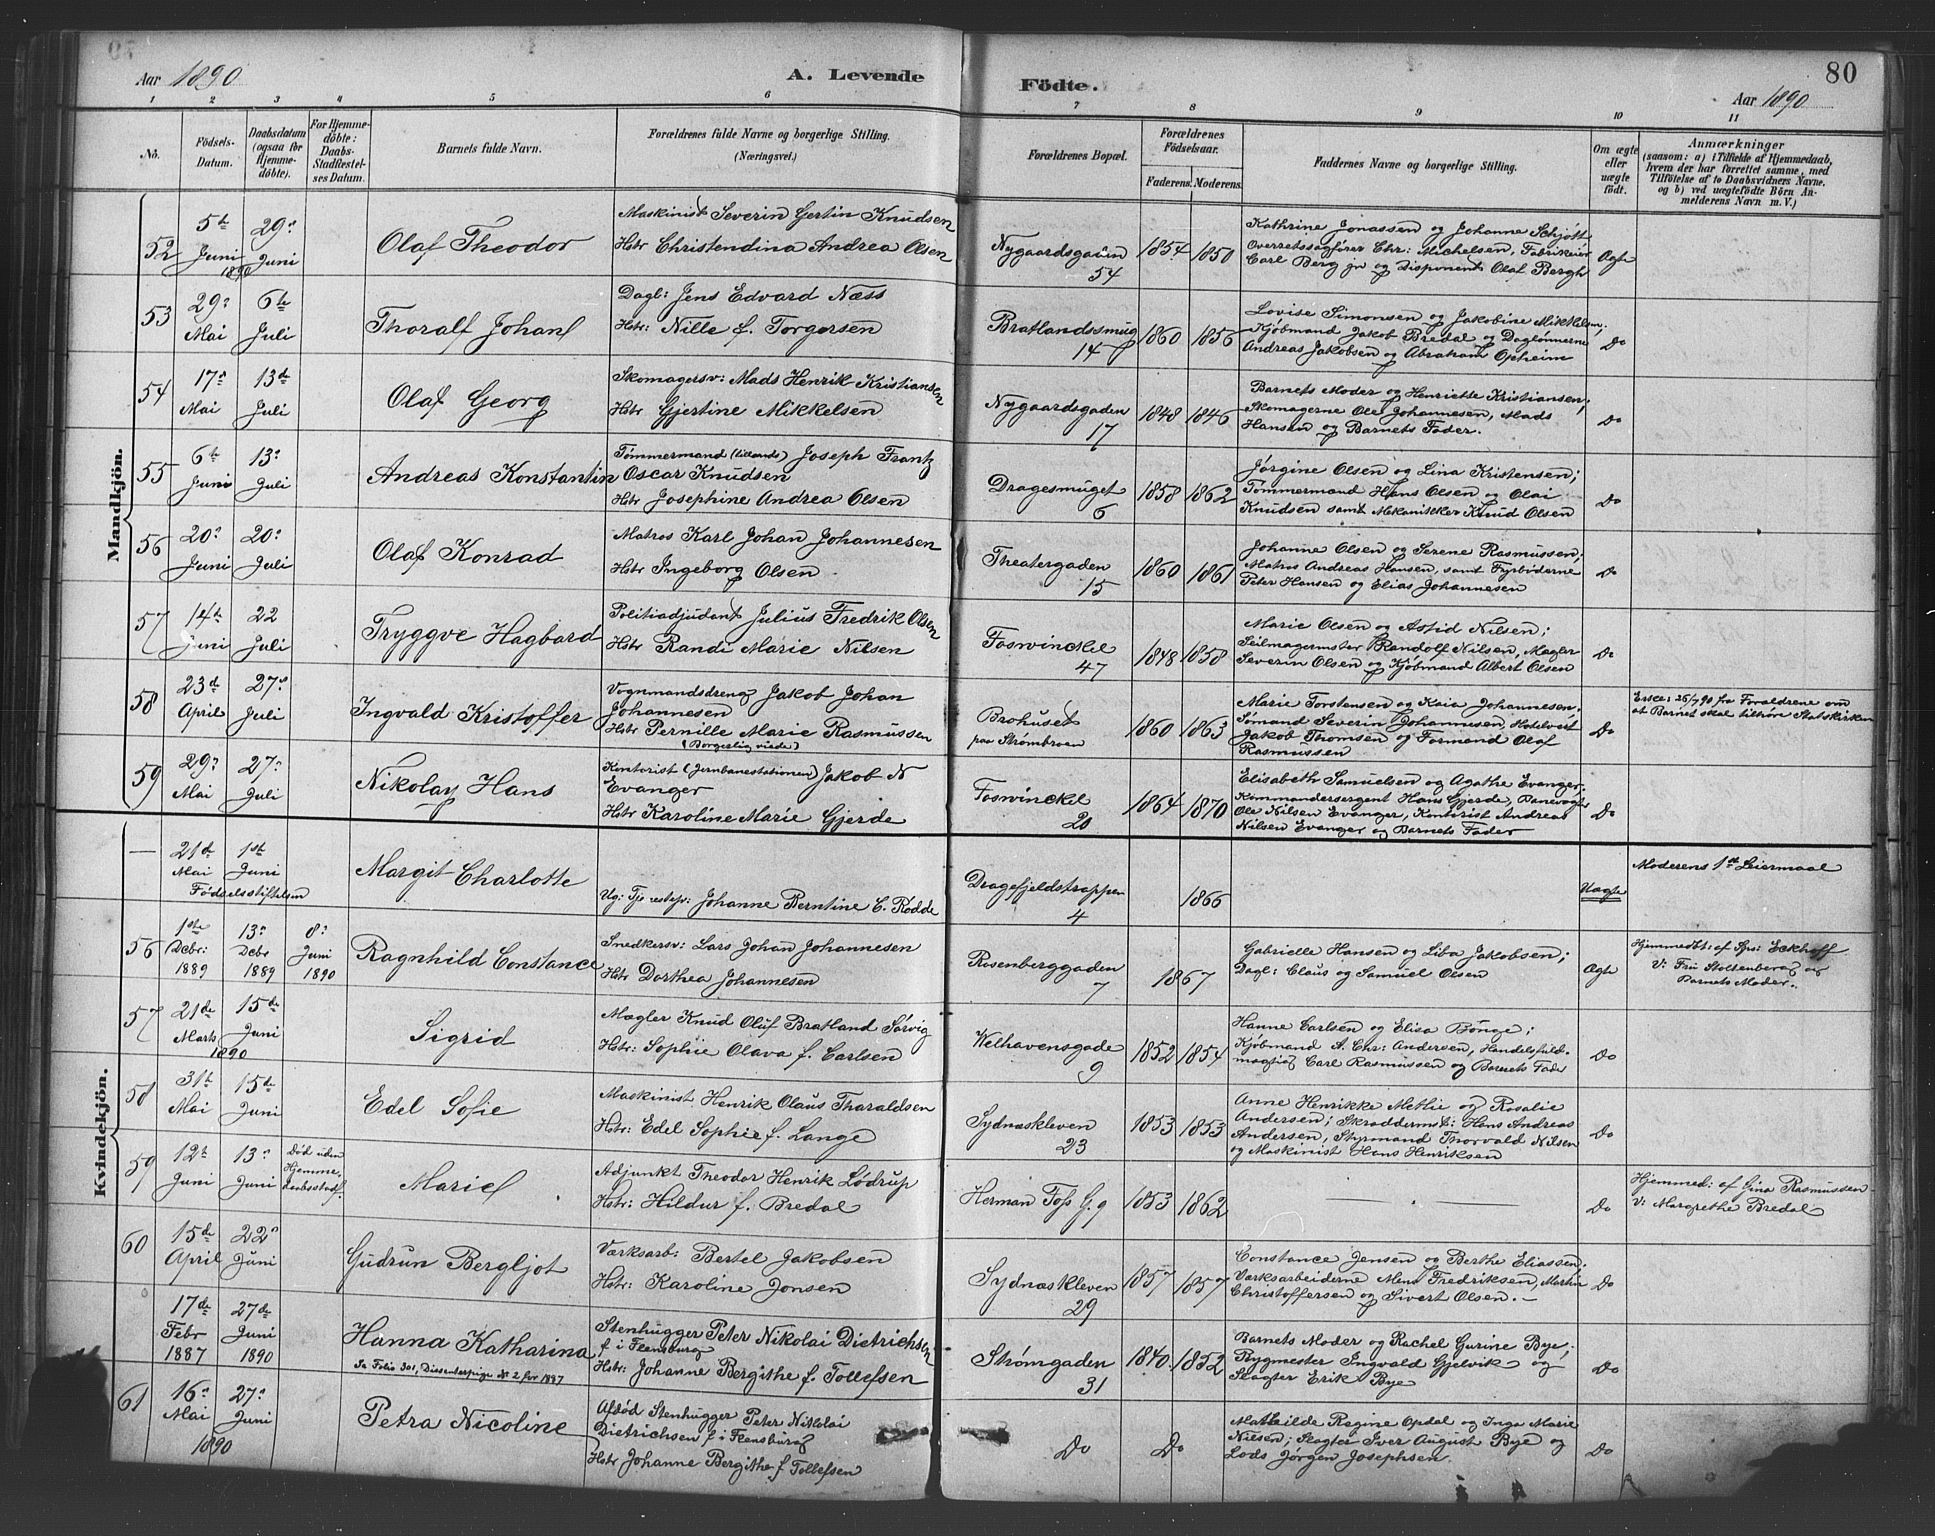 Aar 1890
A. Levende
Födte.
80
Aar 1890
1 2 3 4 5 6 7 8 9 10 11
No.
Födsels-Datum.
Daabsdatum (ogsaa for Hjemmedöbte).
For Hjemmedöbte: Daabs-Stadfæstelses Datum.
Barnets fulde Navn.
Forældrenes fulde Navne og borgerlige Stilling.
(Næringsvei.)
Forældrenes Bopæl.
Forældrenes Födselsaar.
Faderens. Moderens.
Faddernes Navne og borgerlige Stilling.
Om ægte eller uægte födt.
Anmærkninger
(saasom: a) i Tilfælde af Hjemmedaab, hvem der har forrettet samme, med Tilföielse af to Daabsvidners Navne, og b) ved uægtefödte Börn Anmelderens Navn m. V.)
Mandkjön.
52
5te Juni 1890
29de Juni
Olaf Theodor
Maskinist Severin Gertin Knudsen
Hstr Christendina Andrea Olsen
Nygaardsgaden 54
1854 1850
Kathrine Jonassen og Johanne Schjött
Overretssagförer Chr: Michelsen, Fabrikeier
Carl Berg jr og Disponent Olaf Bergh
Ægte
53
29de Mai
6te Juli
Thoralf Johan
Dagl: Jens Edvard Næss
Hstr: Nille f. Torgersen
Bratlandsmug 14
1860 1856
Lovise Simonsen og Jakobine Mikkelsen.
Kjöbmand Jakob Bredal og Daglönnerne
Andreas Jakobsen og Abraham Opheim
Do
54
17de Mai
13de Juli
Olaf Georg
Skomagersv: Mads Henrik Kristiansen
Hstr Gjertine Mikkelsen
Nygaardsgaden 17
1848 1846
Barnets Moder og Henriette Kristiansen;
Skomagerne Ole Johannesen, Mads
Hansen og Barnets Fader.
Do
55
6te Juni
13de Juli
Andreas Konstantin
Tömmermand (tillands) Joseph Frantz
Oscar Knudsen
Hstr Josephine Andrea Olsen
Dragesmuget 6
1858 1862
Jörgine Olsen og Lina Kristensen;
Tömmermand Hans Olsen og Olai
Knudsen samt Mekanikker Knud Olsen
Do
56
20de Juni
20de Juli
Olaf Konrad
Matros Karl Johan Johannesen
Hstr Ingeborg Olsen
Theatergaden 15
1860 1861
Johanne Olsen og Serene Rasmussen;
Matros Andreas Hansen, samt Fyrböderne
Peter Hansen og Elias Johannesen
Do
57
14te Juni
22 Juli
Tryggve Hagbard
Politiadjudant Julius Fredrik Olsen
Hstr Randi Marie Nilsen
Foswinckel 47
1848 1858
Marie Olsen og Astid Nilsen;
Seilmagermster Randolf Nilsen, Mægler
Severin Olsen og Kjöbmand Albert Olsen
Do
58
23de April
27de Juli
Ingvald Kristoffer
Vognmandsdreng Jakob Johan
Johannesen
Hstr Pernille Marie Rasmussen
(Borgerlig viede)
Brohuset paa Strömbroen
1860 1863
Marie Torstensen og Kaia Johannesen.
Sömand Severin Johannesen, Hotelvært
Jakob Thomsen og Formand Olaf
Rasmussen
Do
Erklæ: 26/7 90 fra Forældrene om
at Barnet skal tilhöre Statskirken
59
29de Mai
27de Juli
Nikolay Hans
Kontorist (Jernbanestationen) Jakob N
Evanger
Hstr Karoline Marie Gjerde
Foswinckel 20
1864 1870
Elisabeth Samuelsen og Agathe Evanger.
Kommandersergent Hans Gjerde, Banevogter
Ole Nilsen Evanger, Kontorist Andreas
Nilsen Evanger og Barnets Fader
Do
Kvindekjön.
—
21de Mai
1ste Juni
Födselsstiftelsen
Margit Charlotte
Ug: Tje Johanne Berntine C. Rödde
Dragefjeldstrappen 4
1866
Uægte
Moderens 1ste Leiermaal
56
1ste Dcbr: 1889
13de Dcbr 1889
8de Juni 1890
Ragnhild Constance
Snedkersv: Lars Johan Johannesen
Hstr Dorthea Johannesen
Rosenberggaden 7
1867
Gabrielle Hansen og Liba Jakobsen;
Dagl: Claus og Samuel Olsen
Ægte
Hjemmedbt: af Spr: Eckhoff
V: Fru Stoltenberg og
Barnets Moder.
57
21de Marts 1890
15de Juni
Sigrid
Mægler Knud Oluf Bratland Sörvig
Hstr: Sophie Olava f. Carlsen
Welhavensgade 9
1852 1854
Hanne Carlsen og Elisa Bönge;
Kjöbmand A. Chr: Andersen, Handelsfuld-
mægtig Carl Rasmussen og Barnets Fader
Do
58
31te Mai
15de Juni
Edel Sofie
Maskinist Henrik Olaus Tharaldsen
Hstr: Edel Sophie f. Lange
Sydnæskleven 23
1853 1853
Anne Henrikke Methie og Rosalie
Andersen; Skræddermst: Hans Andreas
Andersen, Styrmand Thorvald Nilsen
og Maskinist Hans Henriksen
Do
59
12te Juni
13de Juni
Död uden Hjemmedaabsstadf.
Marie
Adjunkt Theodor Henrik Lödrup
Hstr: Hildur f. Bredal
Herman Foss G. 9
1853 1862
Do
Hjemmed: af Gina Rasmussen
V: Margrethe Bredal
60
15de April
22de Juni
Gudrun Bergljot
Værksarb: Bertel Jakobsen
Hstr: Karoline Jonsen
Sydnæskleven 29
1857 1857
Constance Jensen og Berthe Eliassen.
Værksarbeiderne Mens Fredriksen, Martin
Christoffersen og Sivert Olsen.
Do
17de Febr 1887
27de Juni 1890
Hanna Katharina
In Folio 301, Dissenterpige № 2 for 1887
Stenhugger Peter Nikolai Dietrichsen
f i Flensburg
Hstr: Johanne Bergithe f. Tollefsen
Strömgaden 31
1840 1852
Barnets Moder og Rachel Gurine Bye;
Bygmester Ingvald Gjelvik og
Slagter Erik Bye
Do
61
16de Mai 1890
27de Juni
Petra Nicoline
Afdöd Stenhugger Peter Nikolai
Dietrichsen f i Flensburg
Hstr Johanne Bergithe f Tollefsen
Do
Do
Mathilde Regine Opdal og Inga Marie
Nilsen; Slagter Iver August Bye og
Lods Jörgen Josephsen
Do